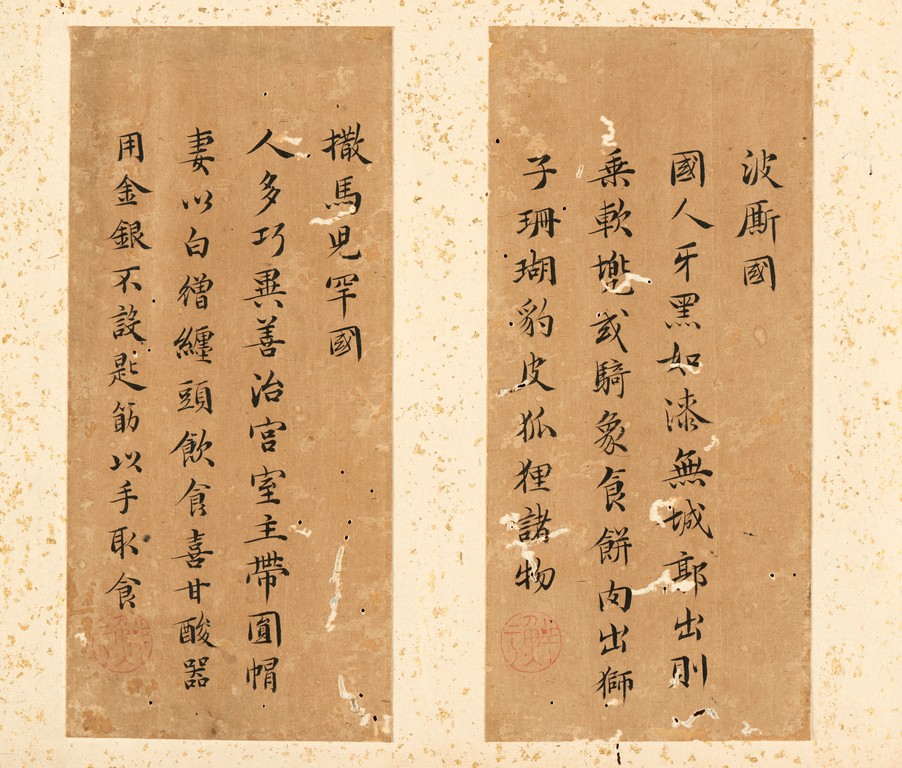 波厮國
國人牙黑如漆無城郭出則
乗軟㙈或騎象食餅肉出獅
子珊瑚豹皮狐狸諸物
撒馬児罕國
人多巧異善治宮室主帶圓帽
妻以白繒纏頭飲食喜甘酸器
用金銀不設匙筯以手取食